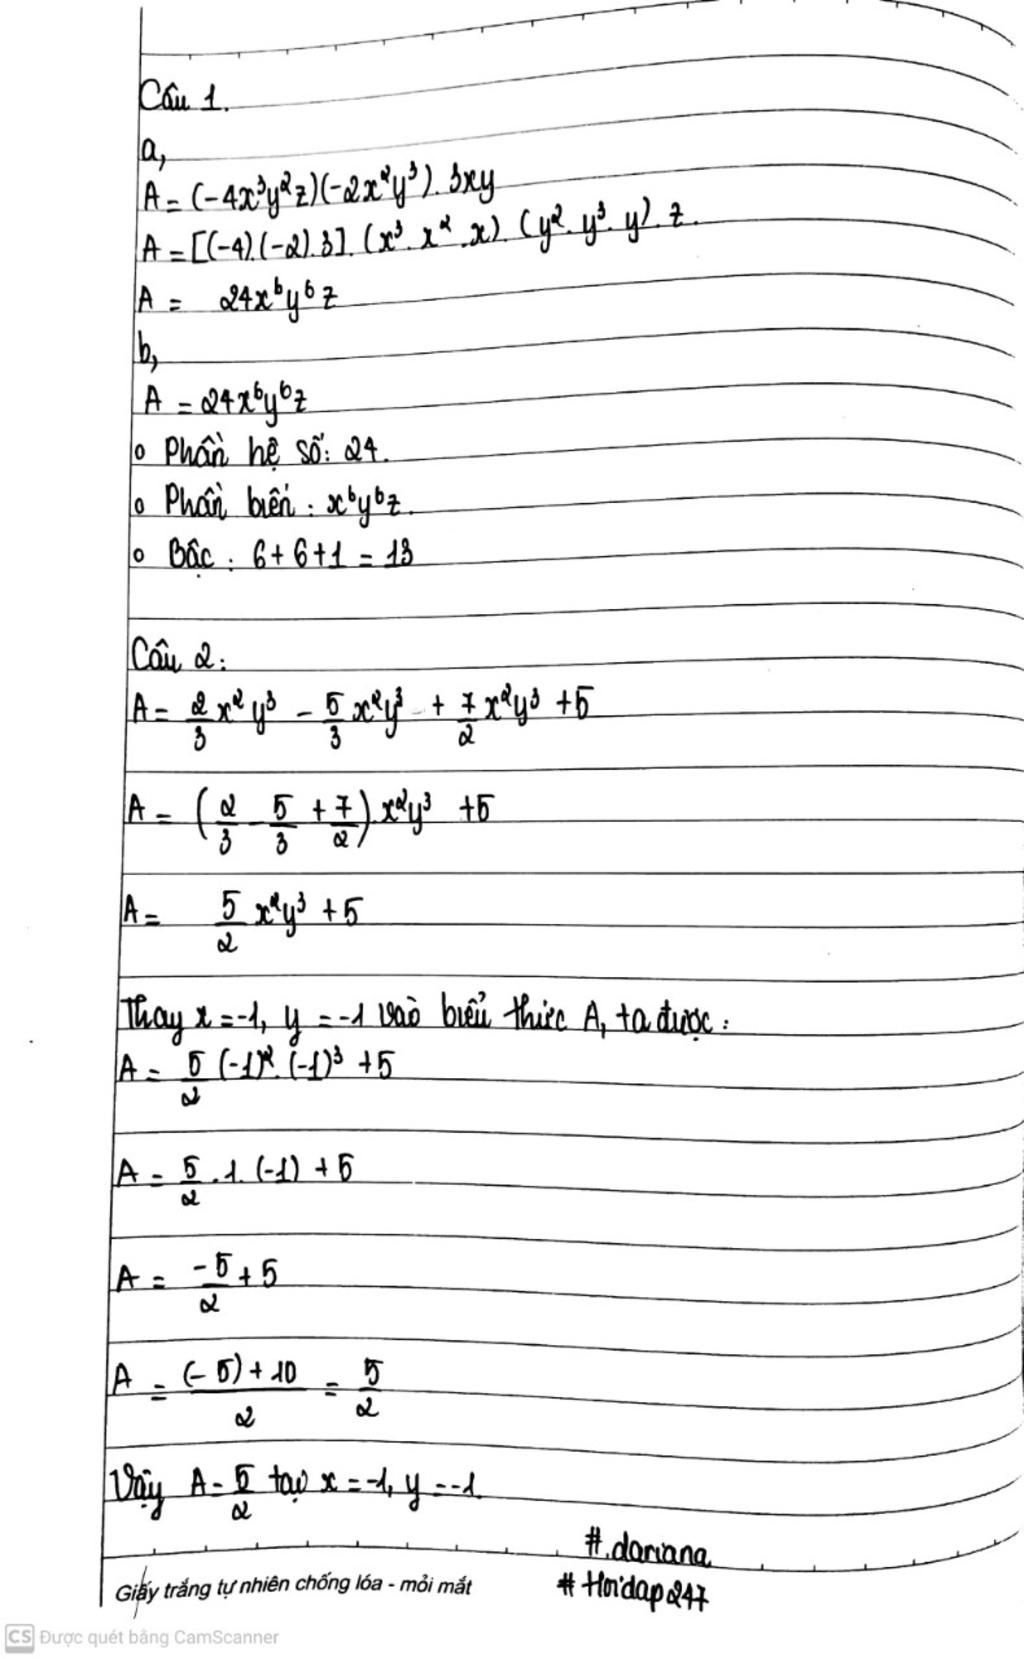 Câu 1.
a,
A = (-4x³y²z)(-2x²y³). 3xy
A = [(-4).(-2).3]. (x³. x². x). (y². y³. y). z.
A = 24x⁶y⁶z
b,
A = 24x⁶y⁶z
o Phần hệ số: 24.
o Phần biến: x⁶y⁶z.
o Bậc: 6+6+1 = 13
Câu 2:
A = 2/3 x² y³ - 5/3 x²y³ + 7/2 x²y³ +5
A = (2/3 - 5/3 + 7/2) x²y³ +5
A = 5/2 x²y³ + 5
Thay x = -1, y = -1 vào biểu thức A, ta được:
A = 5/2 (-1)². (-1)³ +5
A = 5/2 . 1. (-1) + 5
A = -5/2 + 5
A = (-5) + 10/2 = 5/2
Vậy A = 5/2 tại x = -1, y = -1.
#.dariana
# Hoidap247
Giấy trắng tự nhiên chống lóa - mỏi mắt
CS Được quét bằng CamScanner